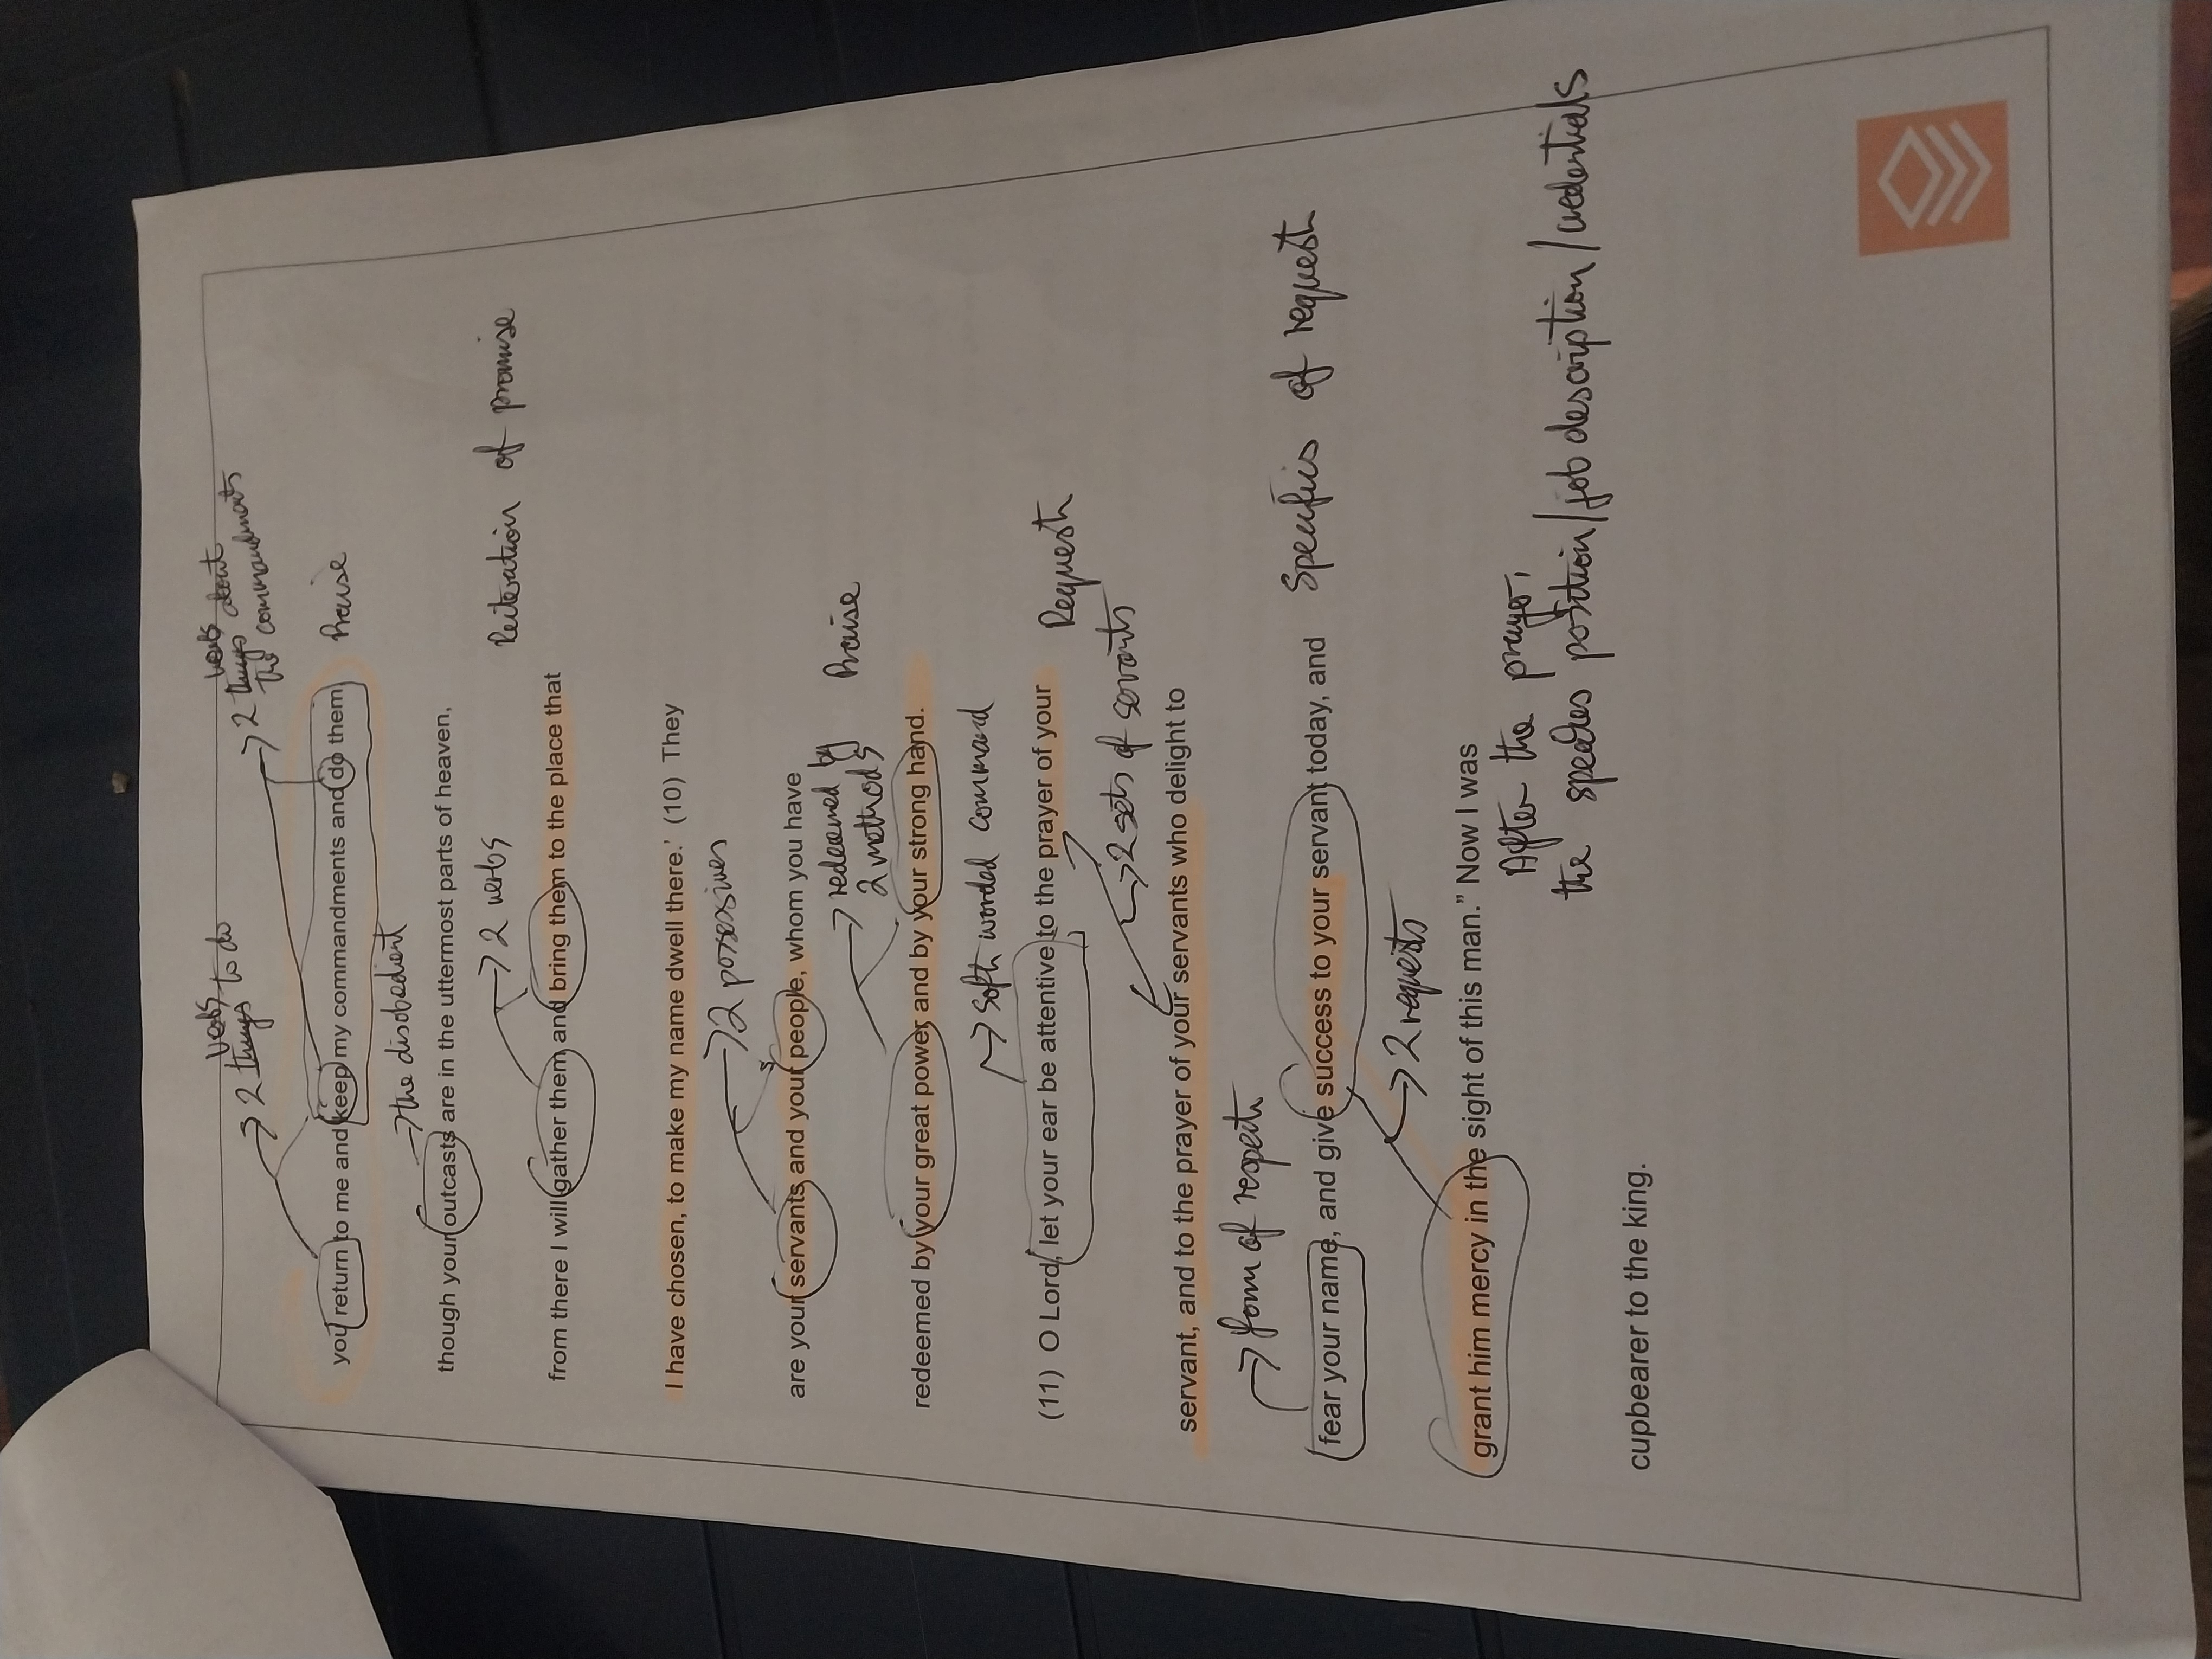 verbs
verbs about
→ 2 things to do
→ 2 things
the commandments
you return to me and keep my commandments and do them Praise
→ the disobedient
though your outcasts are in the uttermost parts of heaven,
→ 2 verbs
Reiteration of promise
from there I will gather them and bring them to the place that
I have chosen, to make my name dwell there.' (10) They
→ 2 possessives
are your servants and your people, whom you have Praise
→ redeemed by
2 methods
redeemed by your great power and by your strong hand.
→ Soft worded command
(11) O Lord, let your ear be attentive to the prayer of your Request
→ 2 sets of servants
servant, and to the prayer of your servants who delight to
→ form of respect
fear your name, and give success to your servant today, and Specifics of request
→ 2 requests
grant him mercy in the sight of this man.” Now I was
After the prayer,
the speaker position/job description/credentials
cupbearer to the king.